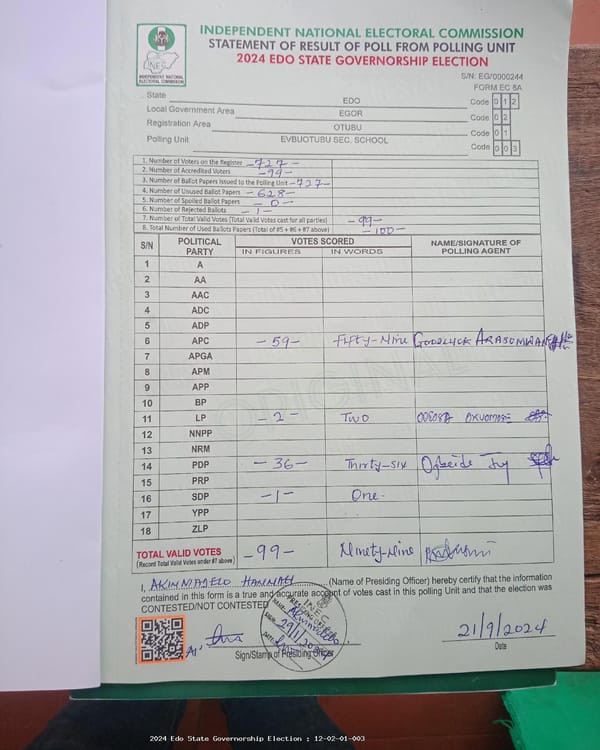 INDEPENDENT NATIONAL ELECTORAL COMMISSION
STATEMENT OF RESULT OF POLL FROM POLLING UNIT
2024 EDO STATE GOVERNORSHIP ELECTION
INEC
INDEPENDENT NATIONAL ELECTORAL COMMISSION
S/N: EG/0000244
FORM EC 8A
State EDO Code 0 1 2
Local Government Area EGOR Code 0 2
Registration Area OTUBU Code 0 1
Polling Unit EVBUOTUBU SEC. SCHOOL Code 0 0 3
1. Number of Voters on the Register -727-
2. Number of Accredited Voters -99-
3. Number of Ballot Papers Issued to the Polling Unit -727-
4. Number of Unused Ballot Papers -628-
5. Number of Spoiled Ballot Papers -0-
6. Number of Rejected Ballots -1-
7. Number of Total Valid Votes (Total Valid Votes cast for all parties) -99-
8. Total Number of Used Ballots Papers (Total of #5 + #6 + #7 above) -100-
S/N POLITICAL PARTY VOTES SCORED NAME/SIGNATURE OF POLLING AGENT
IN FIGURES IN WORDS
1 A
2 AA
3 AAC
4 ADC
5 ADP
6 APC -59- Fifty-Nine GOODLUCK
7 APGA
8 APM
9 APP
10 BP
11 LP -2- Two
12 NNPP
13 NRM
14 PDP -36- Thirty-six Ogbeide
15 PRP
16 SDP -1- One
17 YPP
18 ZLP
TOTAL VALID VOTES -99- Ninety-Nine
(Record Total Valid Votes under #7 above)
I, HANNAH (Name of Presiding Officer) hereby certify that the information
contained in this form is a true and accurate account of votes cast in this polling Unit and that the election was
CONTESTED/NOT CONTESTED
INEC
PRESIDING OFFICER
21/9/2024
Sign/Stamp of Presiding Officer Date
2024 Edo State Governorship Election : 12-02-01-003